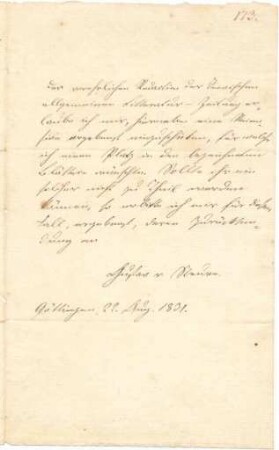 113.
Der verehrlichen Redaction der Jenaischen
allgemeinen Litteratur-Zeitung er-
laube ich mir, hiermit eine Recen-
sion ergebenst einzuschicken, für welche
ich einen Platz in den
Blättern wünschte. Sollte ihr ein
solcher nicht zu Theil werden
können, so erbitte ich mir für diesen
Fall, ergebenst, deren Zurücksen-
dung an
Göttingen, 22. Aug. 1831.